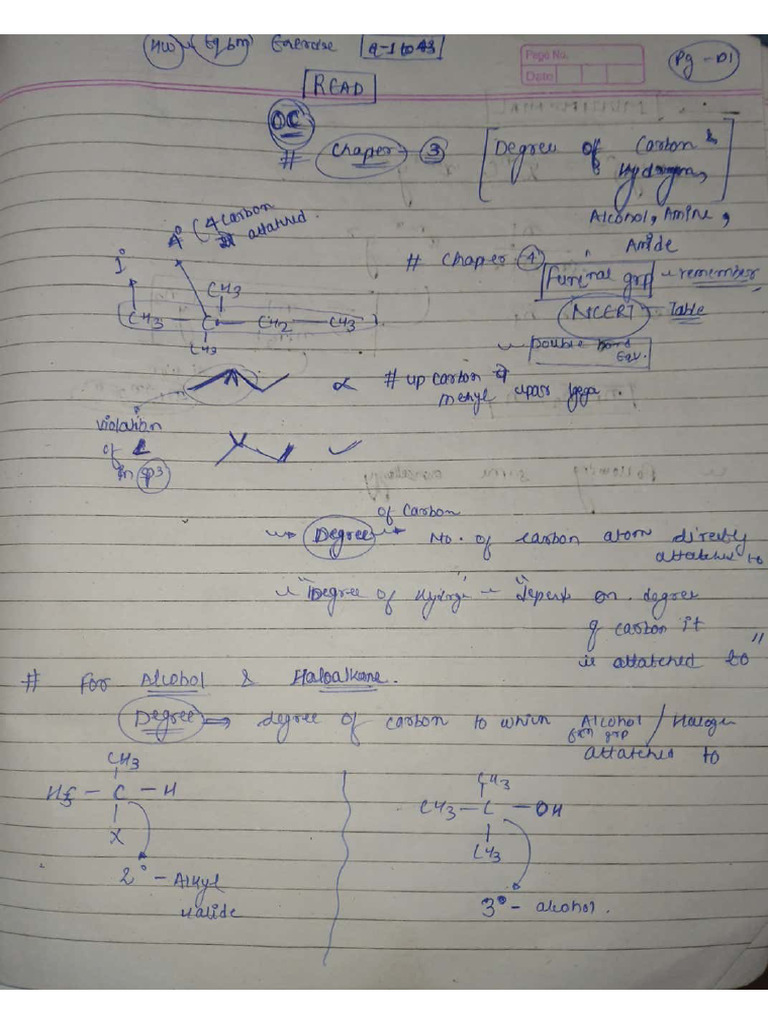 HW Exercise Q-1 to 43
Page No.
Date
Pg-01
READ
OC
# Chaper-3 [Degree of Carbon &
Hydrogen,
Alcohol, Amine,
Amide
4° (4 carbon
attatched.
1°
# Chaper-4
remember
NCERT Table
double bond
Equ.
CH3
CH3 - C - CH2 - CH3
CH3
# up carbon
methyl upar
violation
of L
in sp3
of carbon
Degree No. of carbon atom directly
attatched to
"Degree of Hydrogen - Depend on degree
of carbon it
is attatched to"
# For Alcohol & Haloalkane.
Degree ⇒ degree of carbon to which Alcohol / Halogen
grp
attatched to
CH3
H3C - C - H
X
2° - Alkyl
halide
CH3
CH3 - C - OH
CH3
3° - alcohol.